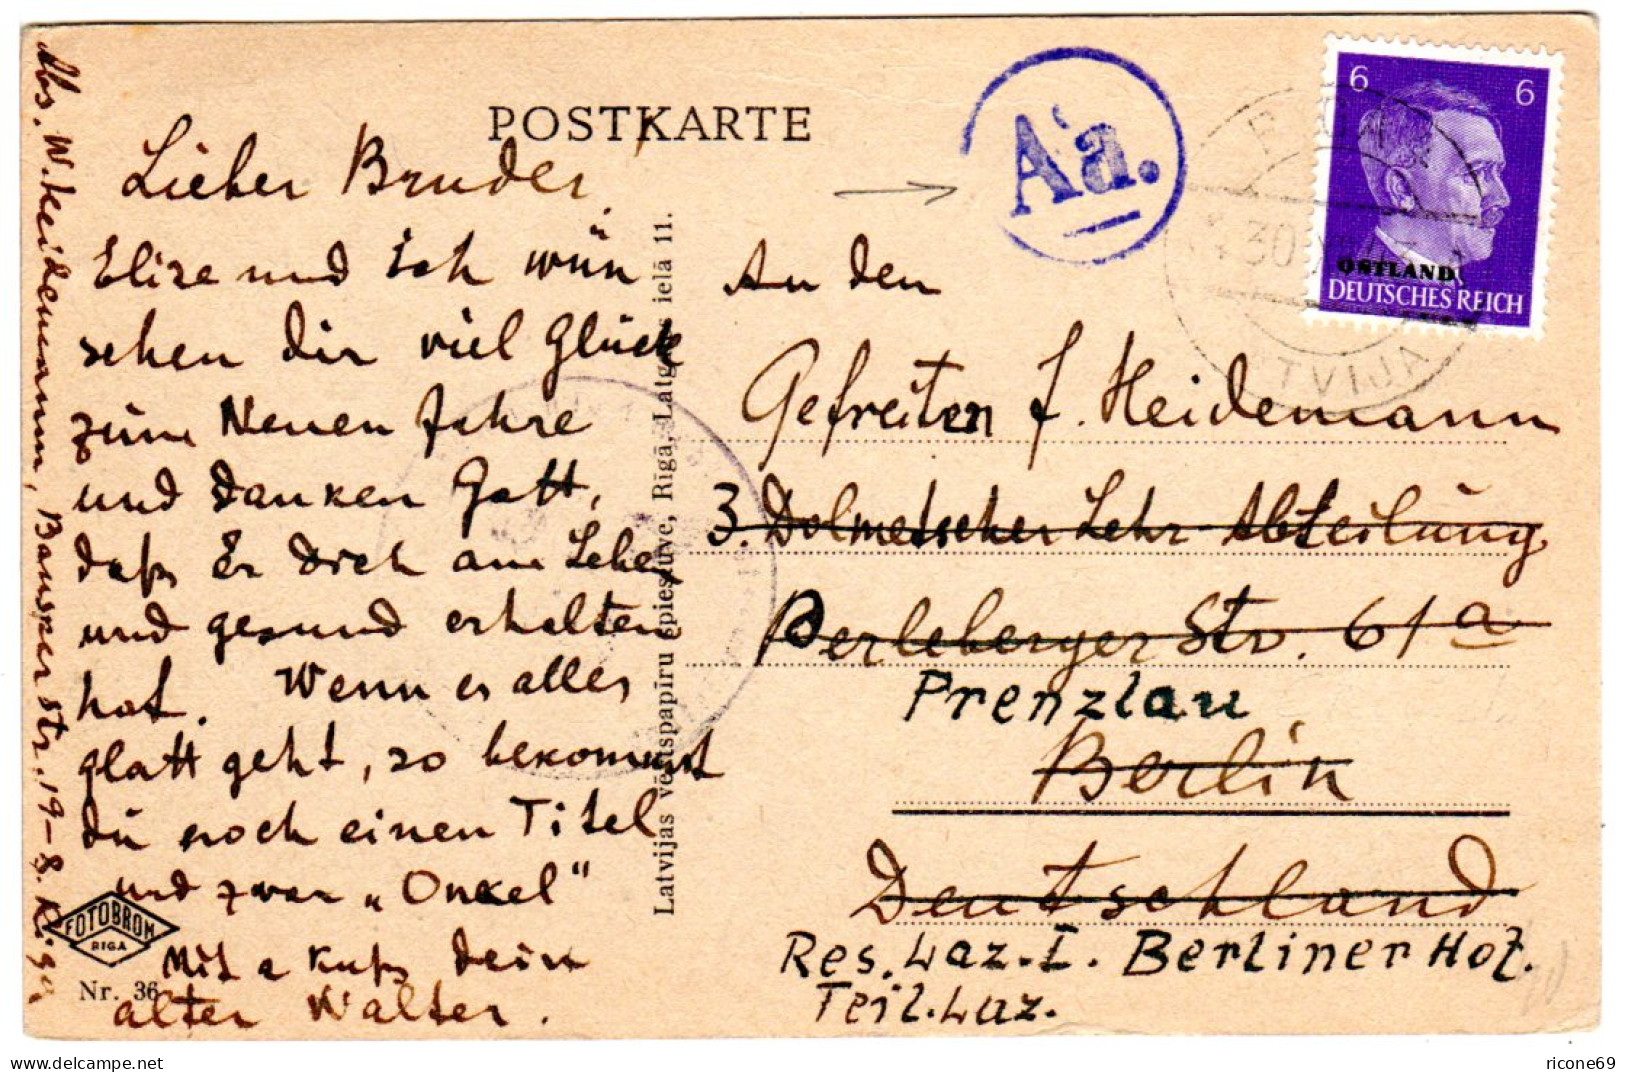 POSTKARTE
Lieber Bruder.
Elise und ich wün
schen dir viel Glück
zum Neuen Jahre
und danken Gott,
daß Er Dich am Leben
und gesund erhalten
hat. Wenn es alles
glatt geht, so bekommst
du noch einen Titel
und zwar „Onkel"
Mit a Kuß dein
alter Walter.
Abs. W. Heidemann, Bausker str. 19-8. Riga
FOTOBROM
RIGA
Nr. 36
Latvijas vērtspapīru spiestuve, Rīgā, Latgales ielā 11.
Aa.
6 6
OSTLAND
DEUTSCHES REICH
30
LATVIJA
An den
Gefreiten J. Heidemann
3. Dolmetscher Lehr-Abteilung
Perleberger Str. 61a
Prenzlau
Berlin
Deutschland
Res. Laz. I. Berliner Hof.
Teil. Laz.
delcampe.net
ricone69